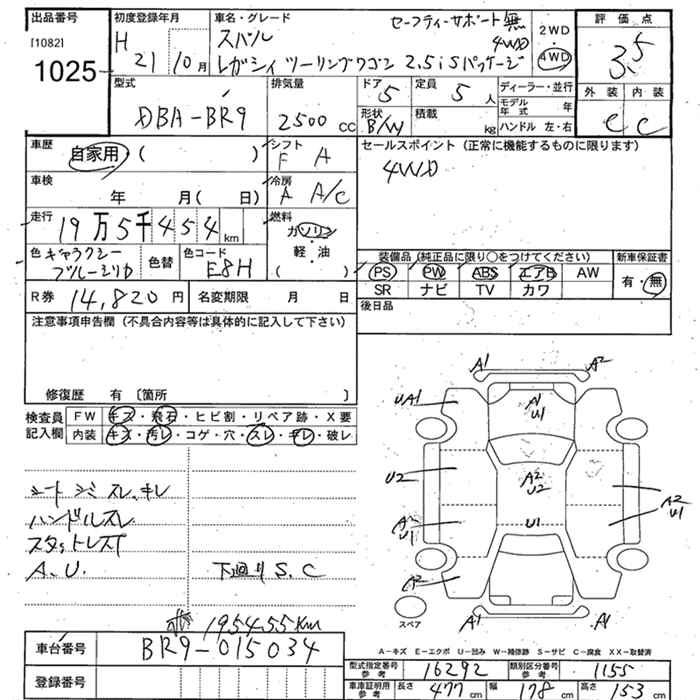 出品番号
[1082]
1025
初度登録年月
H 21 10月
車名・グレード
スバル
セーフティーサポート無
4WD
レガシィ ツーリングワゴン 2.5iSパッケージ
2WD
・
4WD
評価点
3.5
外装 内装
C C
型式
DBA-BR9
排気量
2500 cc
ドア 5
形状 B/W
定員 5 人
積載 kg
ディーラー・並行
モデル年式 年
ハンドル 左・右
車歴
自家用・( )
シフト
F A
セールスポイント(正常に機能するものに限ります)
4WD
車検
年 月( 日)
冷房
A A/C
走行
19万5千454km
燃料
ガソリン
・
軽油
( )
色 ギャラクシーブルーシリカ
色替
色コード
E8H
装備品(純正品に限り○をつけてください)
PS PW ABS エアB AW
SR ナビ TV カワ
新車保証書
有・無
R券 14,820円
名変期限 月 日
後日品
注意事項申告欄(不具合内容等は具体的に記入して下さい)
修復歴 有〔箇所 〕
検査員記入欄
FW キズ・飛石・ヒビ割・リペア跡・X要
内装 キズ・汚レ・コゲ・穴・スレ・キレ・破レ
シートシミ スレ、キレ
ハンドルスレ
スタットレスT
A.U.
下廻りS.C
195455km
A1 A2
UA1
A1
U1
U2
A2
U2
A2
U1
A2
U1
U1
A2
A1 A1
スペア
A-キズ E-エクボ U-凹み W-補修跡 S-サビ C-腐食 XX-取替済
車台番号
BR9-015034
登録番号
型式指定番号 参考
16292
類別区分番号 参考
1155
車庫証明用 参考
長さ 477 cm
幅 178 cm
高さ 153 cm